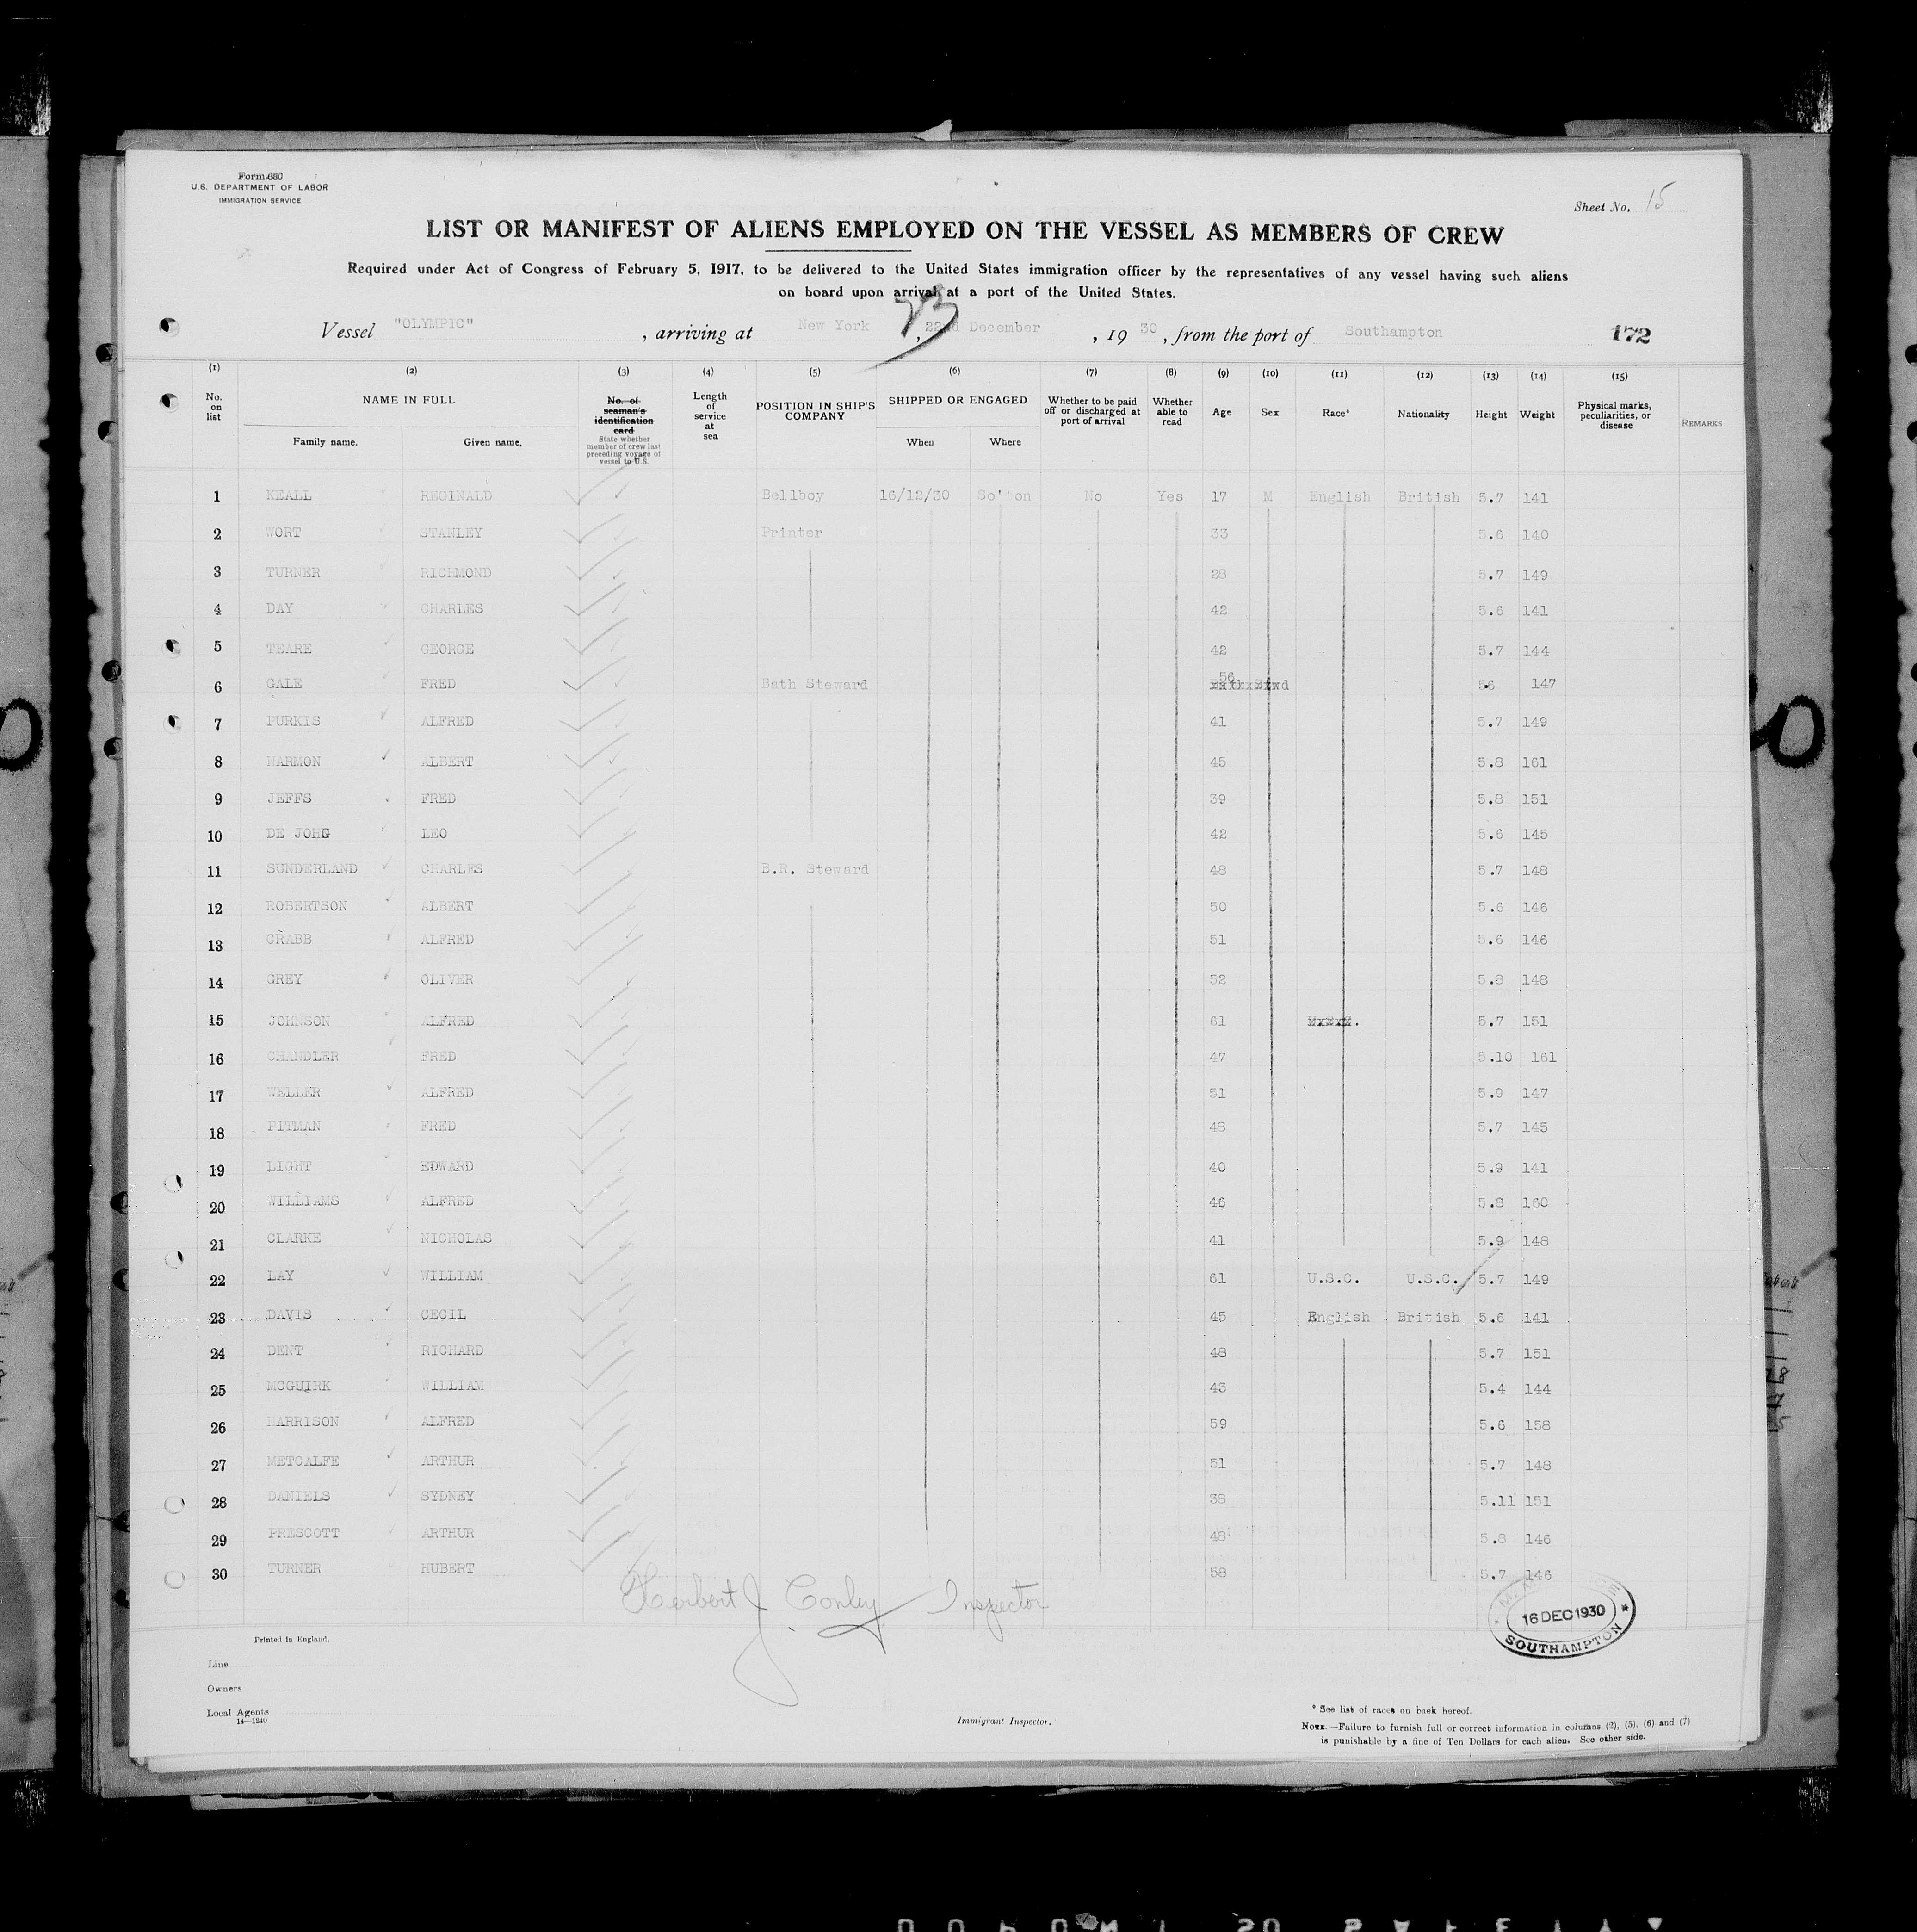 Form 680
U.S. DEPARTMENT OF LABOR
IMMIGRATION SERVICE
Sheet No. 15
LIST OR MANIFEST OF ALIENS EMPLOYED ON THE VESSEL AS MEMBERS OF CREW
Required under Act of Congress of February 5, 1917, to be delivered to the United States immigration officer by the representatives of any vessel having such aliens
on board upon arrival at a port of the United States.
23
Vessel "OLYMPIC", arriving at New York, 22nd December, 1930, from the port of Southampton 172
(1) (2) (3) (4) (5) (6) (7) (8) (9) (10) (11) (12) (13) (14) (15)
No. on list NAME IN FULL Family name. Given name. No. of seaman's identification card State whether member of crew last preceding voyage of vessel to U.S. Length of service at sea POSITION IN SHIP'S COMPANY SHIPPED OR ENGAGED When Where Whether to be paid off or discharged at port of arrival Whether able to read Age Sex Race* Nationality Height Weight Physical marks, peculiarities, or disease REMARKS
1 KEALL REGINALD Bellboy 16/12/30 So'ton No Yes 17 M English British 5.7 141
2 WORT STANLEY Printer 33 5.6 140
3 TURNER RICHMOND 28 5.7 149
4 DAY CHARLES 42 5.6 141
5 TEARE GEORGE 42 5.7 144
6 GALE FRED Bath Steward 56 56 147
7 PURKIS ALFRED 41 5.7 149
8 HARMON ALBERT 45 5.8 161
9 JEFFS FRED 39 5.8 151
10 DE JONG LEO 42 5.6 145
11 SUNDERLAND CHARLES B.R. Steward 48 5.7 148
12 ROBERTSON ALBERT 50 5.6 146
13 CRABB ALFRED 51 5.6 146
14 GREY OLIVER 52 5.8 148
15 JOHNSON ALFRED 61 5.7 151
16 CHANDLER FRED 47 5.10 161
17 WELLER ALFRED 51 5.9 147
18 PITMAN FRED 48 5.7 145
19 LIGHT EDWARD 40 5.9 141
20 WILLIAMS ALFRED 46 5.8 160
21 CLARKE NICHOLAS 41 5.9 148
22 LAY WILLIAM 61 U.S.C. U.S.C. 5.7 149
23 DAVIS CECIL 45 English British 5.6 141
24 DENT RICHARD 48 5.7 151
25 MCGUIRK WILLIAM 43 5.4 144
26 HARRISON ALFRED 59 5.6 158
27 METCALFE ARTHUR 51 5.7 148
28 DANIELS SYDNEY 38 5.11 151
29 PRESCOTT ARTHUR 48 5.8 146
30 TURNER HUBERT 58 5.7 146
Herbert J. Conley Inspector
16 DEC 1930
SOUTHAMPTON
Printed in England.
Line
Owners
Local Agents
14—1240
Immigrant Inspector.
* See list of races on back hereof.
NOTE.—Failure to furnish full or correct information in columns (2), (5), (6) and (7)
is punishable by a fine of Ten Dollars for each alien. See other side.